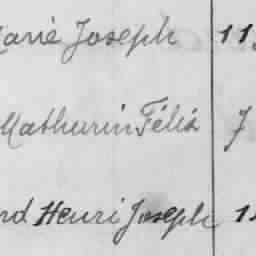 Marie Joseph 11
Mathurin Félix 7
nd Henri Joseph 1